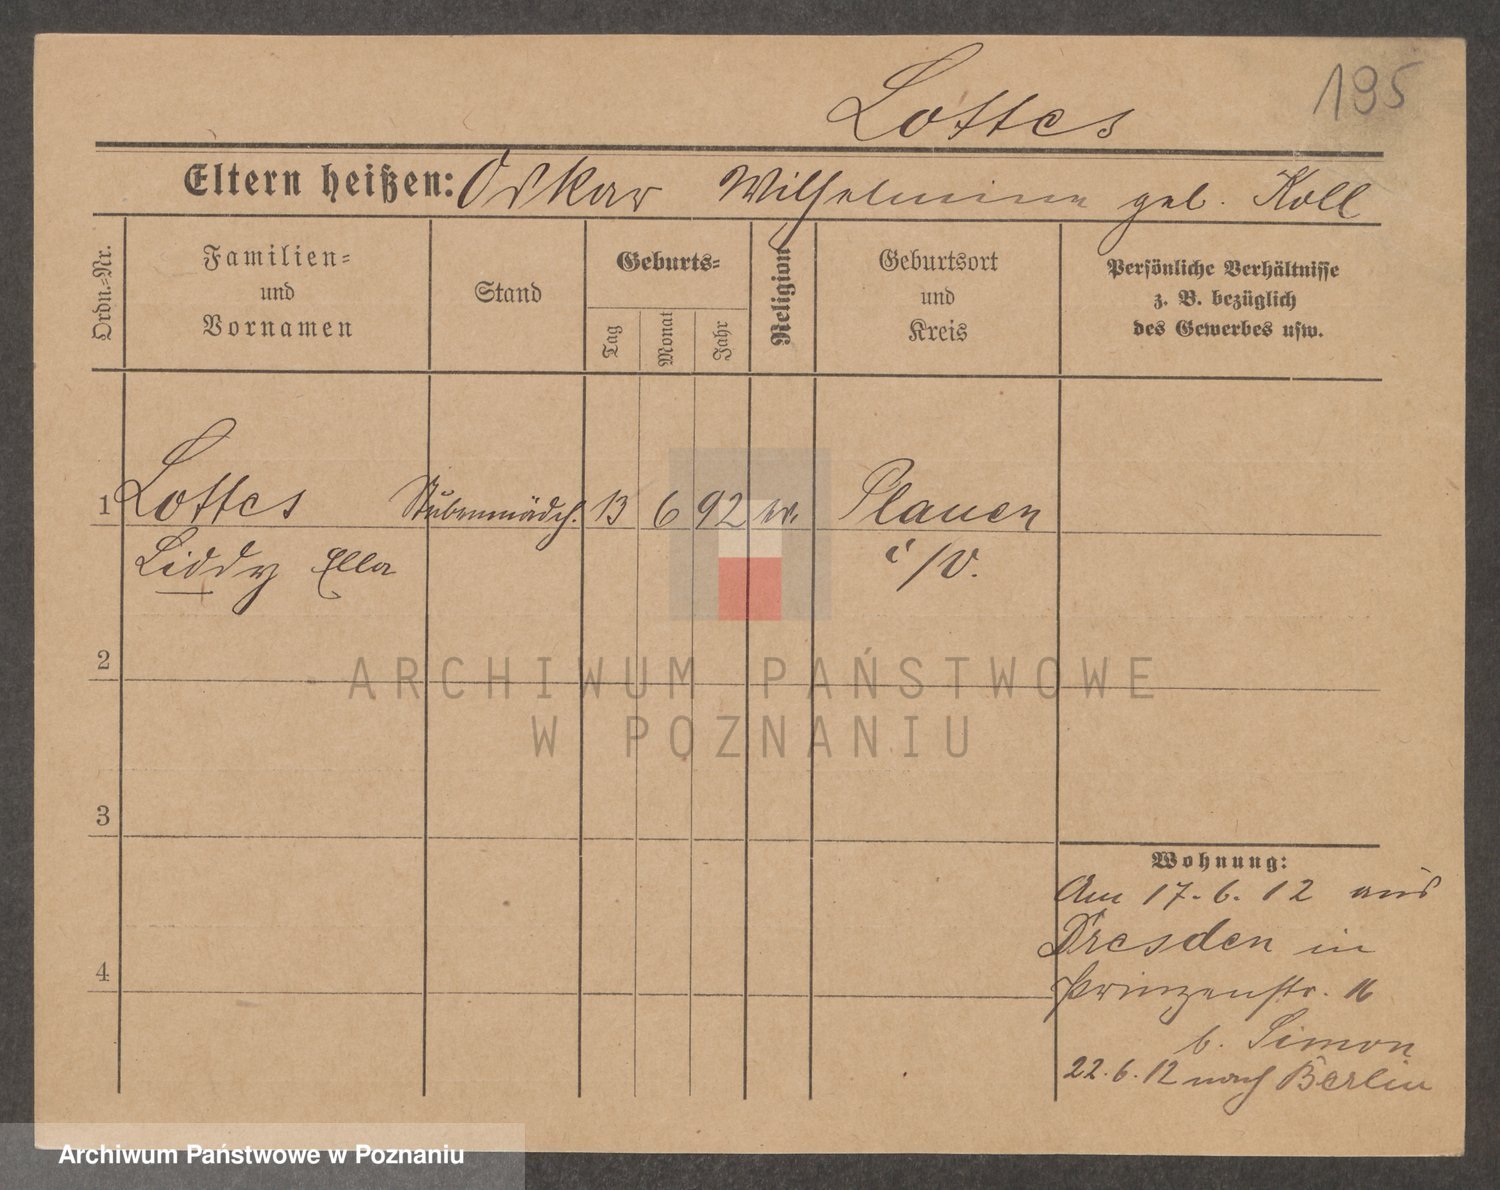 195
Lottes
Eltern heißen: Oskar Wilhelmine geb. Koll
Ordn.-Nr.
Familien-
und
Vornamen
Stand
Geburts-
Tag
Monat
Jahr
Religion
Geburtsort
und
Kreis
Persönliche Verhältnisse
z. B. bezüglich
des Gewerbes usw.
1 Lottes Stubenmädch. 13 6 92 ev. Plauen
Liddy Ella i/V.
2
ARCHIWUM PAŃSTWOWE
W POZNANIU
3
Wohnung:
Am 17.6.12 aus
Dresden in
4
Prinzenstr. 16
b. Simon
22.6.12 nach Berlin
Archiwum Państwowe w Poznaniu